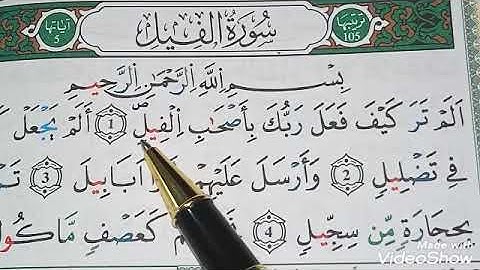 ترتيبها
105
سُورَةُ الفِيلِ
آياتها
5
بِسْمِ اللَّهِ الرَّحْمَٰنِ الرَّحِيمِ
اَلَمْ تَرَ كَيْفَ فَعَلَ رَبُّكَ بِأَصْحَٰبِ اِلْفِيلِ 1 أَلَمْ يَجْعَلْ
فِي تَضْلِيلٍ 2 وَأَرْسَلَ عَلَيْهِمْ اَبَابِيلَ 3
بِحِجَارَةٍ مِّن سِجِّيلٍ 4 كَعَصْفٍ
Made with
VideoShow